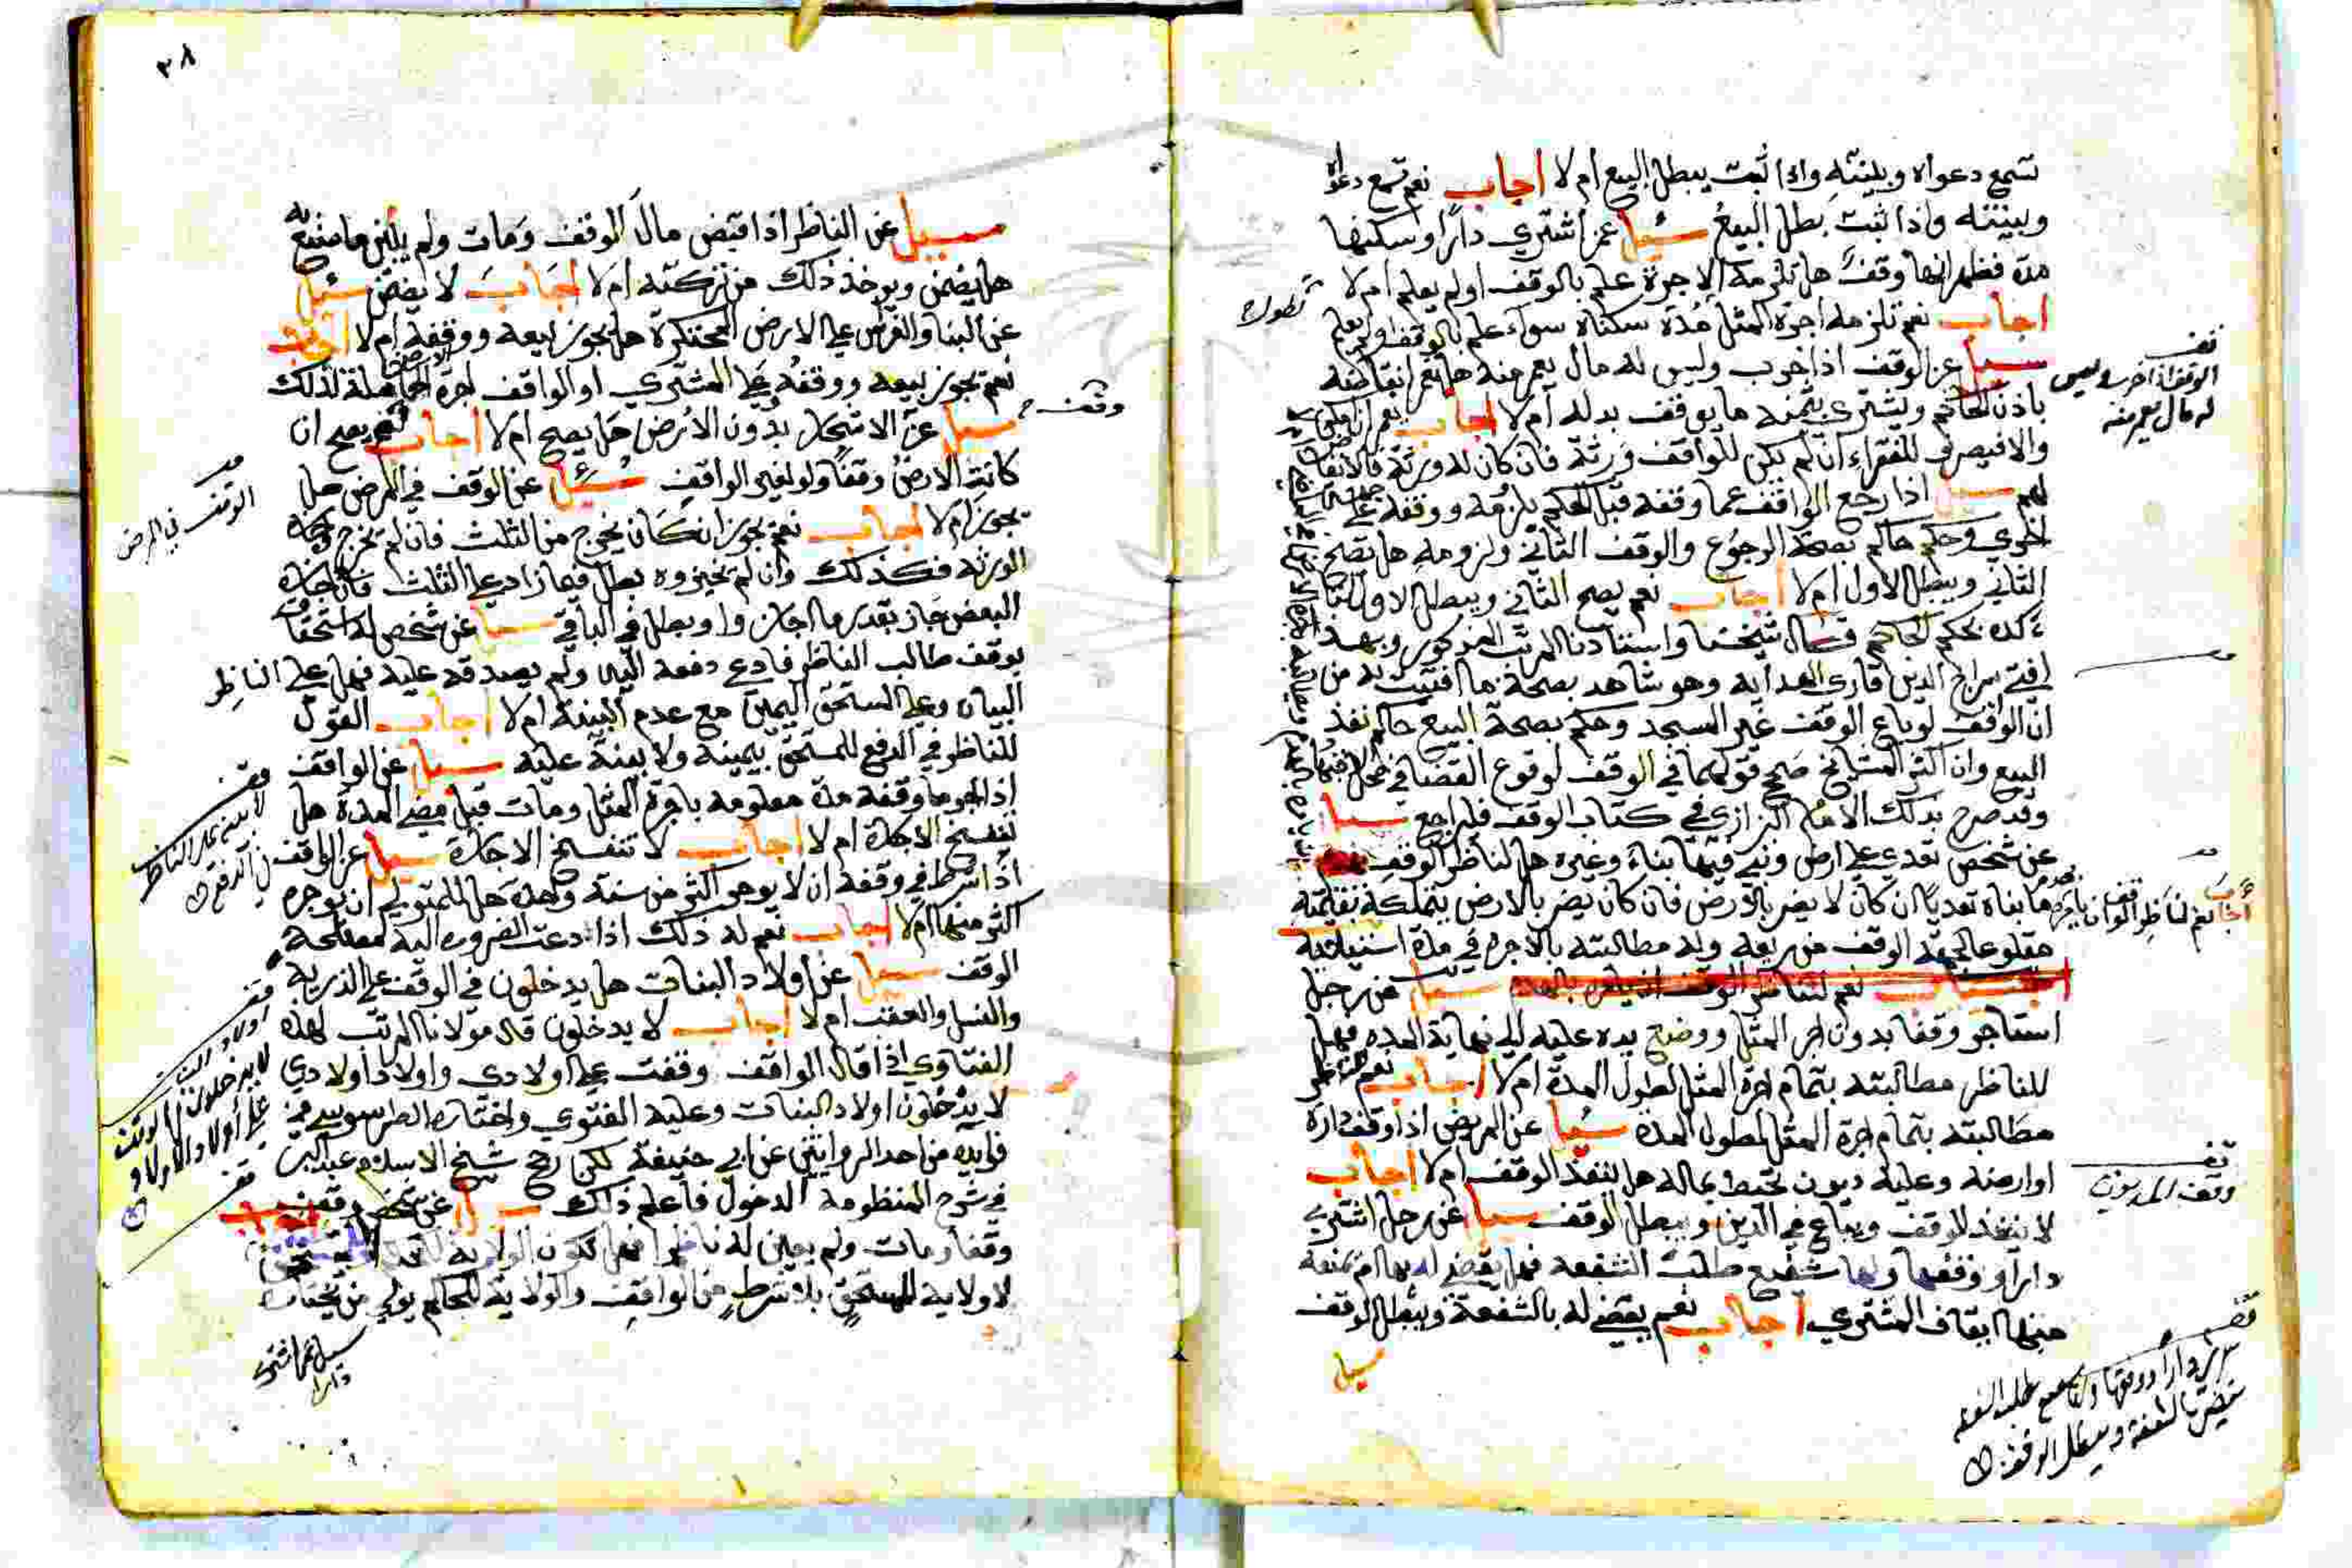 تسمع دعواه وبينته واذا ثبت يبطل البيع ام لا اجاب نعم تسمع دعواه
وبينته واذا ثبت بطل البيع سئل عمن اشتري دارا وسكنها
مدة فظهر انها وقف هل تلزمه الاجرة علم بالوقف اولم يعلم ام لا
اجاب نعم تلزمه اجرة المثل مدة سكناه سواء علم بالوقف اولم يعلم
سيل عن الوقف اذا خرب وليس له مال يعمر منه هل تباع انقاضه
باذن الحاكم ويشتري بثمنه ما يوقف بدله ام لا اجاب نعم ان امكن
والا فيصرف للفقراء ان لم يكن للواقف ورثة فان كان له ورثة فالانقاض
لهم سيل اذا رجع الواقف عما وقفه قبل الحكم بلزومه ووقفه علي جهة
اخري وحكم حاكم بصحة الرجوع والوقف الثاني ولزومه هل يصح
الثاني ويبطل الاول ام لا اجاب نعم يصح الثاني ويبطل الاول
بحكم الحاكم قال شيخنا واستاذنا المرتب المذكور وبهذا
افتي سراج الدين قاري الهداية وهو شاهد بصحة ما افتيت به من
ان الواقف لو باع الوقف غير المسجد وحكم بصحة البيع حاكم نفذ
البيع وان اكثر المشايخ صحح قولهما في الوقف لوقوع القضا في محل الاجتهاد
وقد صرح بذلك الامام البزازي في كتاب الوقف فليراجع سيل
عن شخص تعدي علي ارض وبني فيها بناء وغيره هل لناظر الوقف
ما بناه تعديا ان كان لا يضر بالارض فان كان يضر بالارض يتملكه بقيمته
مقلوعا لجهة الوقف من ريعه وله مطالبته بالاجرة في مدة استيلائه
اجاب نعم لناظر الوقف سيل عن رجل
استاجر وقفا بدون اجر المثل ووضع يده عليه الي نهاية المده فهل
للناظر مطالبته بتمام اجرة المثل لطول المدة ام لا اجاب نعم للناظر
مطالبته بتمام اجرة المثل لطول المدة سئل عن المريض اذا وقف داره
او ارضه وعليه ديون تحيط بماله هل ينفذ الوقف ام لا اجاب
لا ينفذ الوقف ويباع في الدين ويبطل الوقف سيل عن رجل اشتري
دارا ووقفها ولها شفيع طلب الشفعة فهل يقضي له بها ام تمنعه
منها ايقاف المشتري اجاب نعم يقضي له بالشفعة ويبطل الوقف
سيل
قف
الوقف اذا خرب وليس
له مال يعمر منه
اجاب نعم لناظر الوقف ان
قف
وقف المديون
٣٨
سيل عن الناظر اذا قبض مال الوقف ومات ولم يبين ما صنع به
هل يضمن ويوخذ ذلك من تركته ام لا اجاب لا يضمن سئل
عن البنا والغراس علي الارض المحتكرة هل يجوز بيعه ووقفه ام لا اجاب
نعم يجوز بيعه ووقفه وعلي المشتري او الواقف اجرة الارض الحاملة لذلك
سيل عن الاشجار بدون الارض هل يصح ام لا اجاب نعم يصح ان
كانت الارض وقفا ولو لغير الواقف سئل عن الوقف في المرض هل
يجوز ام لا اجاب نعم يجوز ان كان يخرج من الثلث فان لم يخرج واجازه
الورثه فكذلك وان لم يجيزوه بطل فيما زاد علي الثلث فان اجازه
البعض جاز بقدر ما اجازوا وبطل في الباقي سيل عن شخص له استحقاق
بوقف طالب الناظر فادعي دفعه اليه ولم يصدقه عليه فهل علي الناظر
البيان وعلي المستحق اليمين مع عدم البينة ام لا اجاب القول
للناظر في الدفع للمستحق بيمينه ولا بينة عليه سيل عن الواقف
اذا اجر ما وقفه مدة معلومة باجرة المثل ومات قبل مضي المدة هل
تنفسخ الاجارة ام لا اجاب لا تنفسخ الاجارة سيل عن الواقف
اذا شرط في وقفه ان لا يوجر اكثر من سنة واحدة هل للمتولي ان يوجره
اكثر منها ام لا اجاب نعم له ذلك اذا دعت الضرورة اليه لمصلحة
الوقف سيل عن اولاد البنات هل يدخلون في الوقف علي الذرية
والنسل والعقب ام لا اجاب لا يدخلون قال مولانا المرتب لهذه
الفتاوي اذا قال الواقف وقفت علي اولادي واولاد اولادي
لا يدخلون اولاد البنات وعليه الفتوي واختاره الطرسوسي في
فوايده من احد الروايتين عن ابي حنيفة لكن رجح شيخ الاسلام عبد البر
في شرح المنظومة الدخول فاعلم ذلك سيل عن شخص وقف
وقفا ومات ولم يعين له ناظرا فهل تكون الولاية
لا ولاية للمستحق بلا شرط من الواقف والولاية للحاكم يولي من يختار
سيل عمن اشتري
دارا
وقف
الوقف في المرض
قف
لا بينة علي الناظر
قف
اولاد البنات
لا يدخلون في الوقف
علي اولاد الاولاد
قف